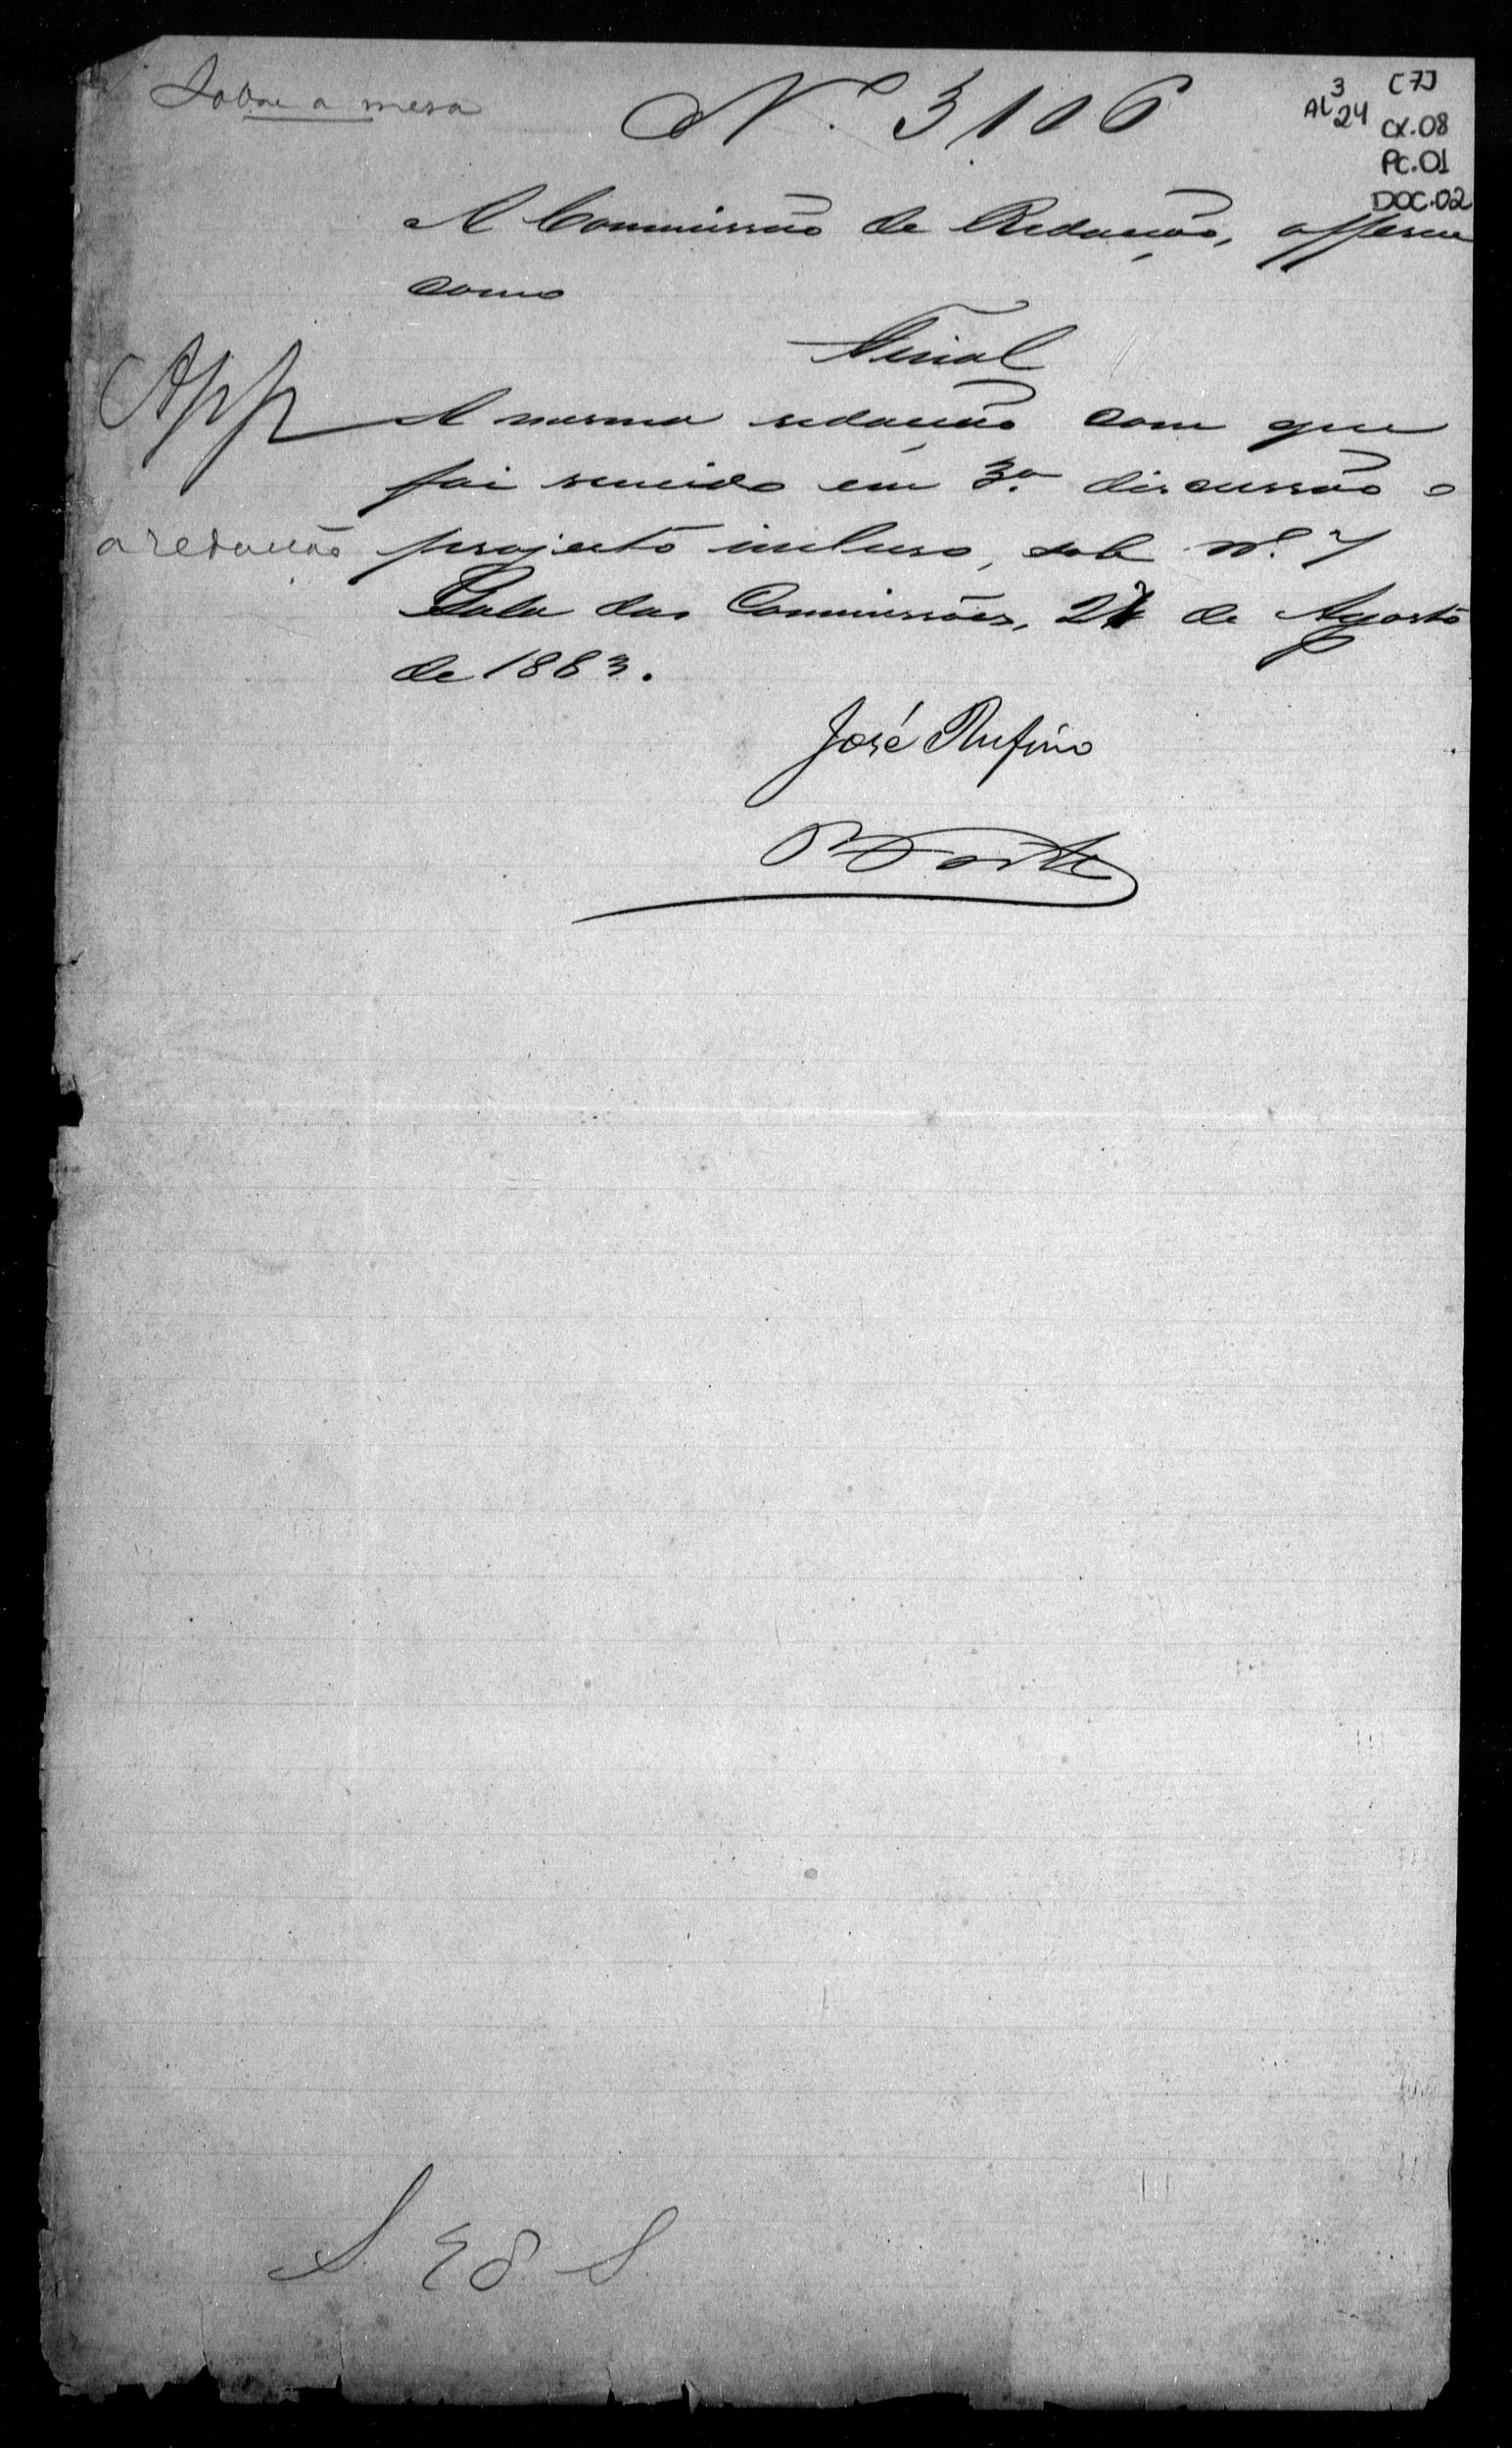 Sobre a mesa
N. 3106
3 [7]
AL 24 CX.08
PC.01
DOC.02
A Commissão de Redacção, offerece
como
Final
App A mesma redacção com que
foi vencido em 3ª discussão o
a redacção projecto incluso, sob nº. 7
Sala das Commissões, 27 de Agosto
de 1883.
José Rufino